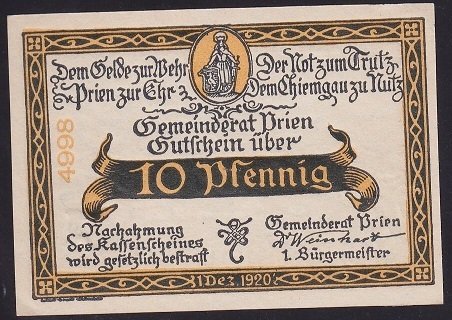 Dem Gelde zur Wehr
Der Not zum Trutz
Prien zur Ehr
Dem Chiemgau zu Nutz
Gemeinderat Prien
Gutschein über
10 Pfennig
4998
Nachahmung
des Kassenscheines
wird gesetzlich bestraft
Gemeinderat Prien
Dr Weinhart
1. Bürgermeister
1 Dez. 1920